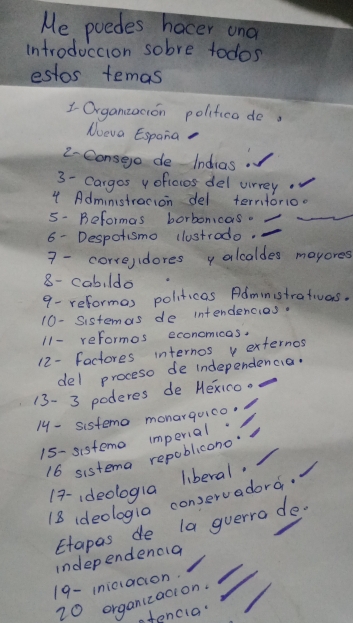 Me puedes hacer una
introduccion sobre todos
estos temas
1- Organización politica de
Nueva España
2- Consejo de Indias.
3- Cargos y oficios del virrey.
4 Administracion del territorio.
5- Reformas borbonicas.
6- Despotismo ilustrado.
7- corregidores y alcaldes mayores
8- cabildo.
9- reformas politicas Administrativas.
10- Sistemas de intendencias.
11- reformas economicas.
12- factores internos y externos
del proceso de independencia.
13- 3 poderes de México.
14- sistema monarquico.
15- sistema imperial.
16 sistema republicano.
17- ideologia liberal.
18 ideologia conservadora.
Etapas de la guerra de.
independencia
19- iniciacion.
20 organizacion.